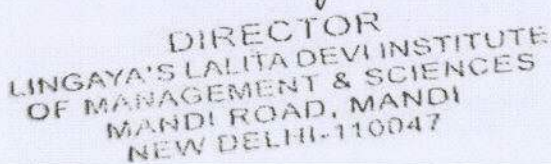 DIRECTOR
LINGAYA'S LALITA DEVI INSTITUTE
OF MANAGEMENT & SCIENCES
MANDI ROAD, MANDI
NEW DELHI-110047